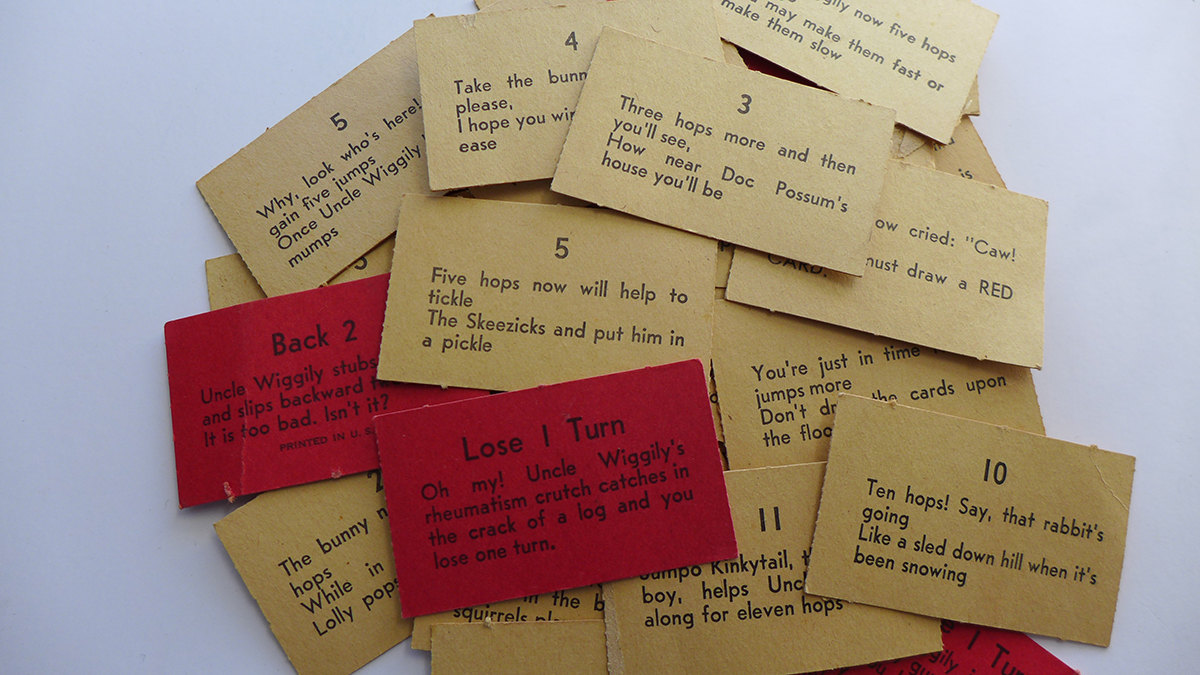 gily now five hops
may make them fast or
make them slow
4
Take the
please,
I hope you
ease
3
Three hops more and then
you'll see,
How near Doc Possum's
house you'll be
5
Why, look who's here!
gain five jumps
Once Uncle Wiggily
mumps
is
cried: "Caw!
must draw a RED
CARD.
5
5
Five hops now will help to
tickle
The Skeezicks and put him in
a pickle
Back 2
Uncle Wiggily stubs
and slips backward
It is too bad. Isn't it?
PRINTED IN U. S.
You're just in time
jumps more
Don't the cards upon
the
Lose 1 Turn
Oh my! Uncle Wiggily's
rheumatism crutch catches in
the crack of a log and you
lose one turn.
10
Ten hops! Say, that rabbit's
going
Like a sled down hill when it's
been snowing
2
The bunny
hops
While in
Lolly pops
in the
squirrels
11
Jumpo Kinkytail,
boy, helps
along for eleven hops
1 Turn